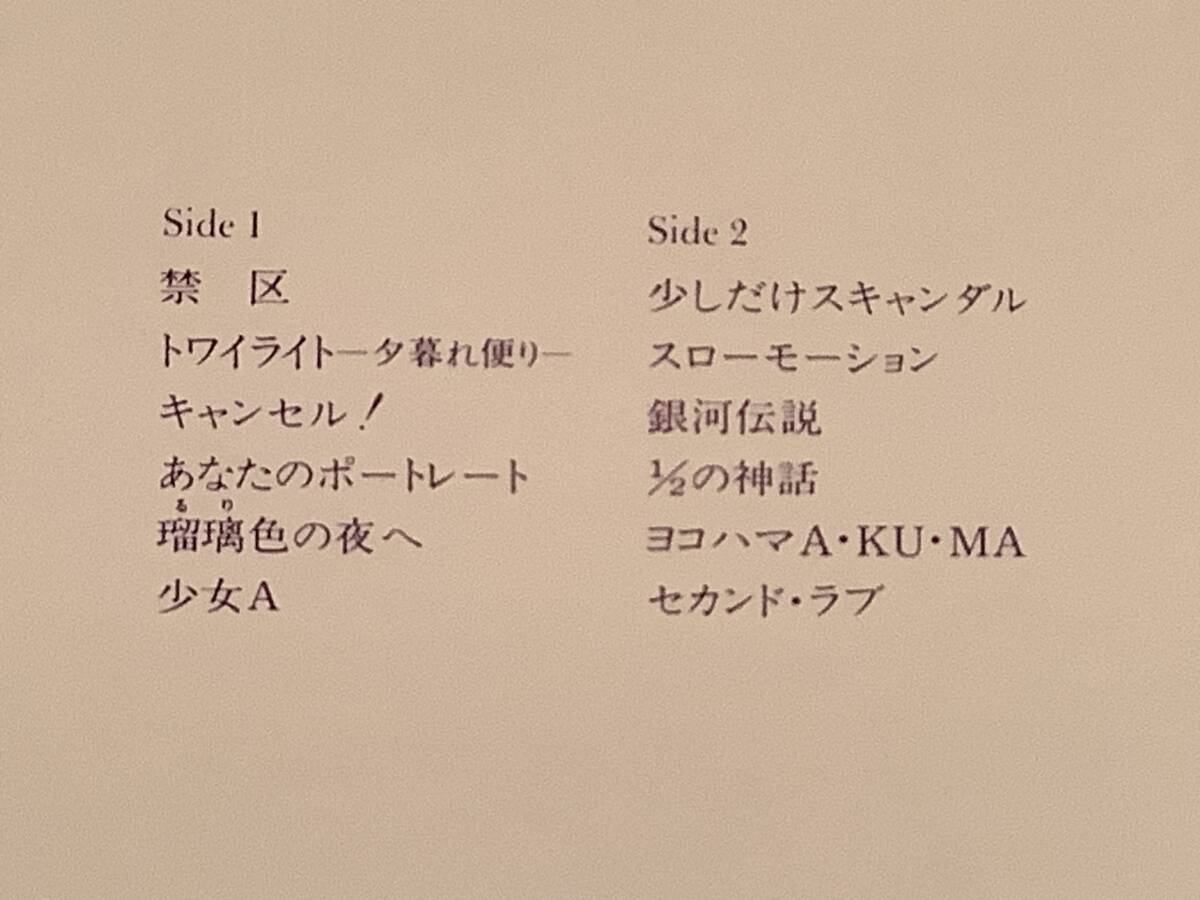 Side 1
禁　区
トワイライト―夕暮れ便り―
キャンセル！
あなたのポートレート
るり
瑠璃色の夜へ
少女A
Side 2
少しだけスキャンダル
スローモーション
銀河伝説
½の神話
ヨコハマA・KU・MA
セカンド・ラブ